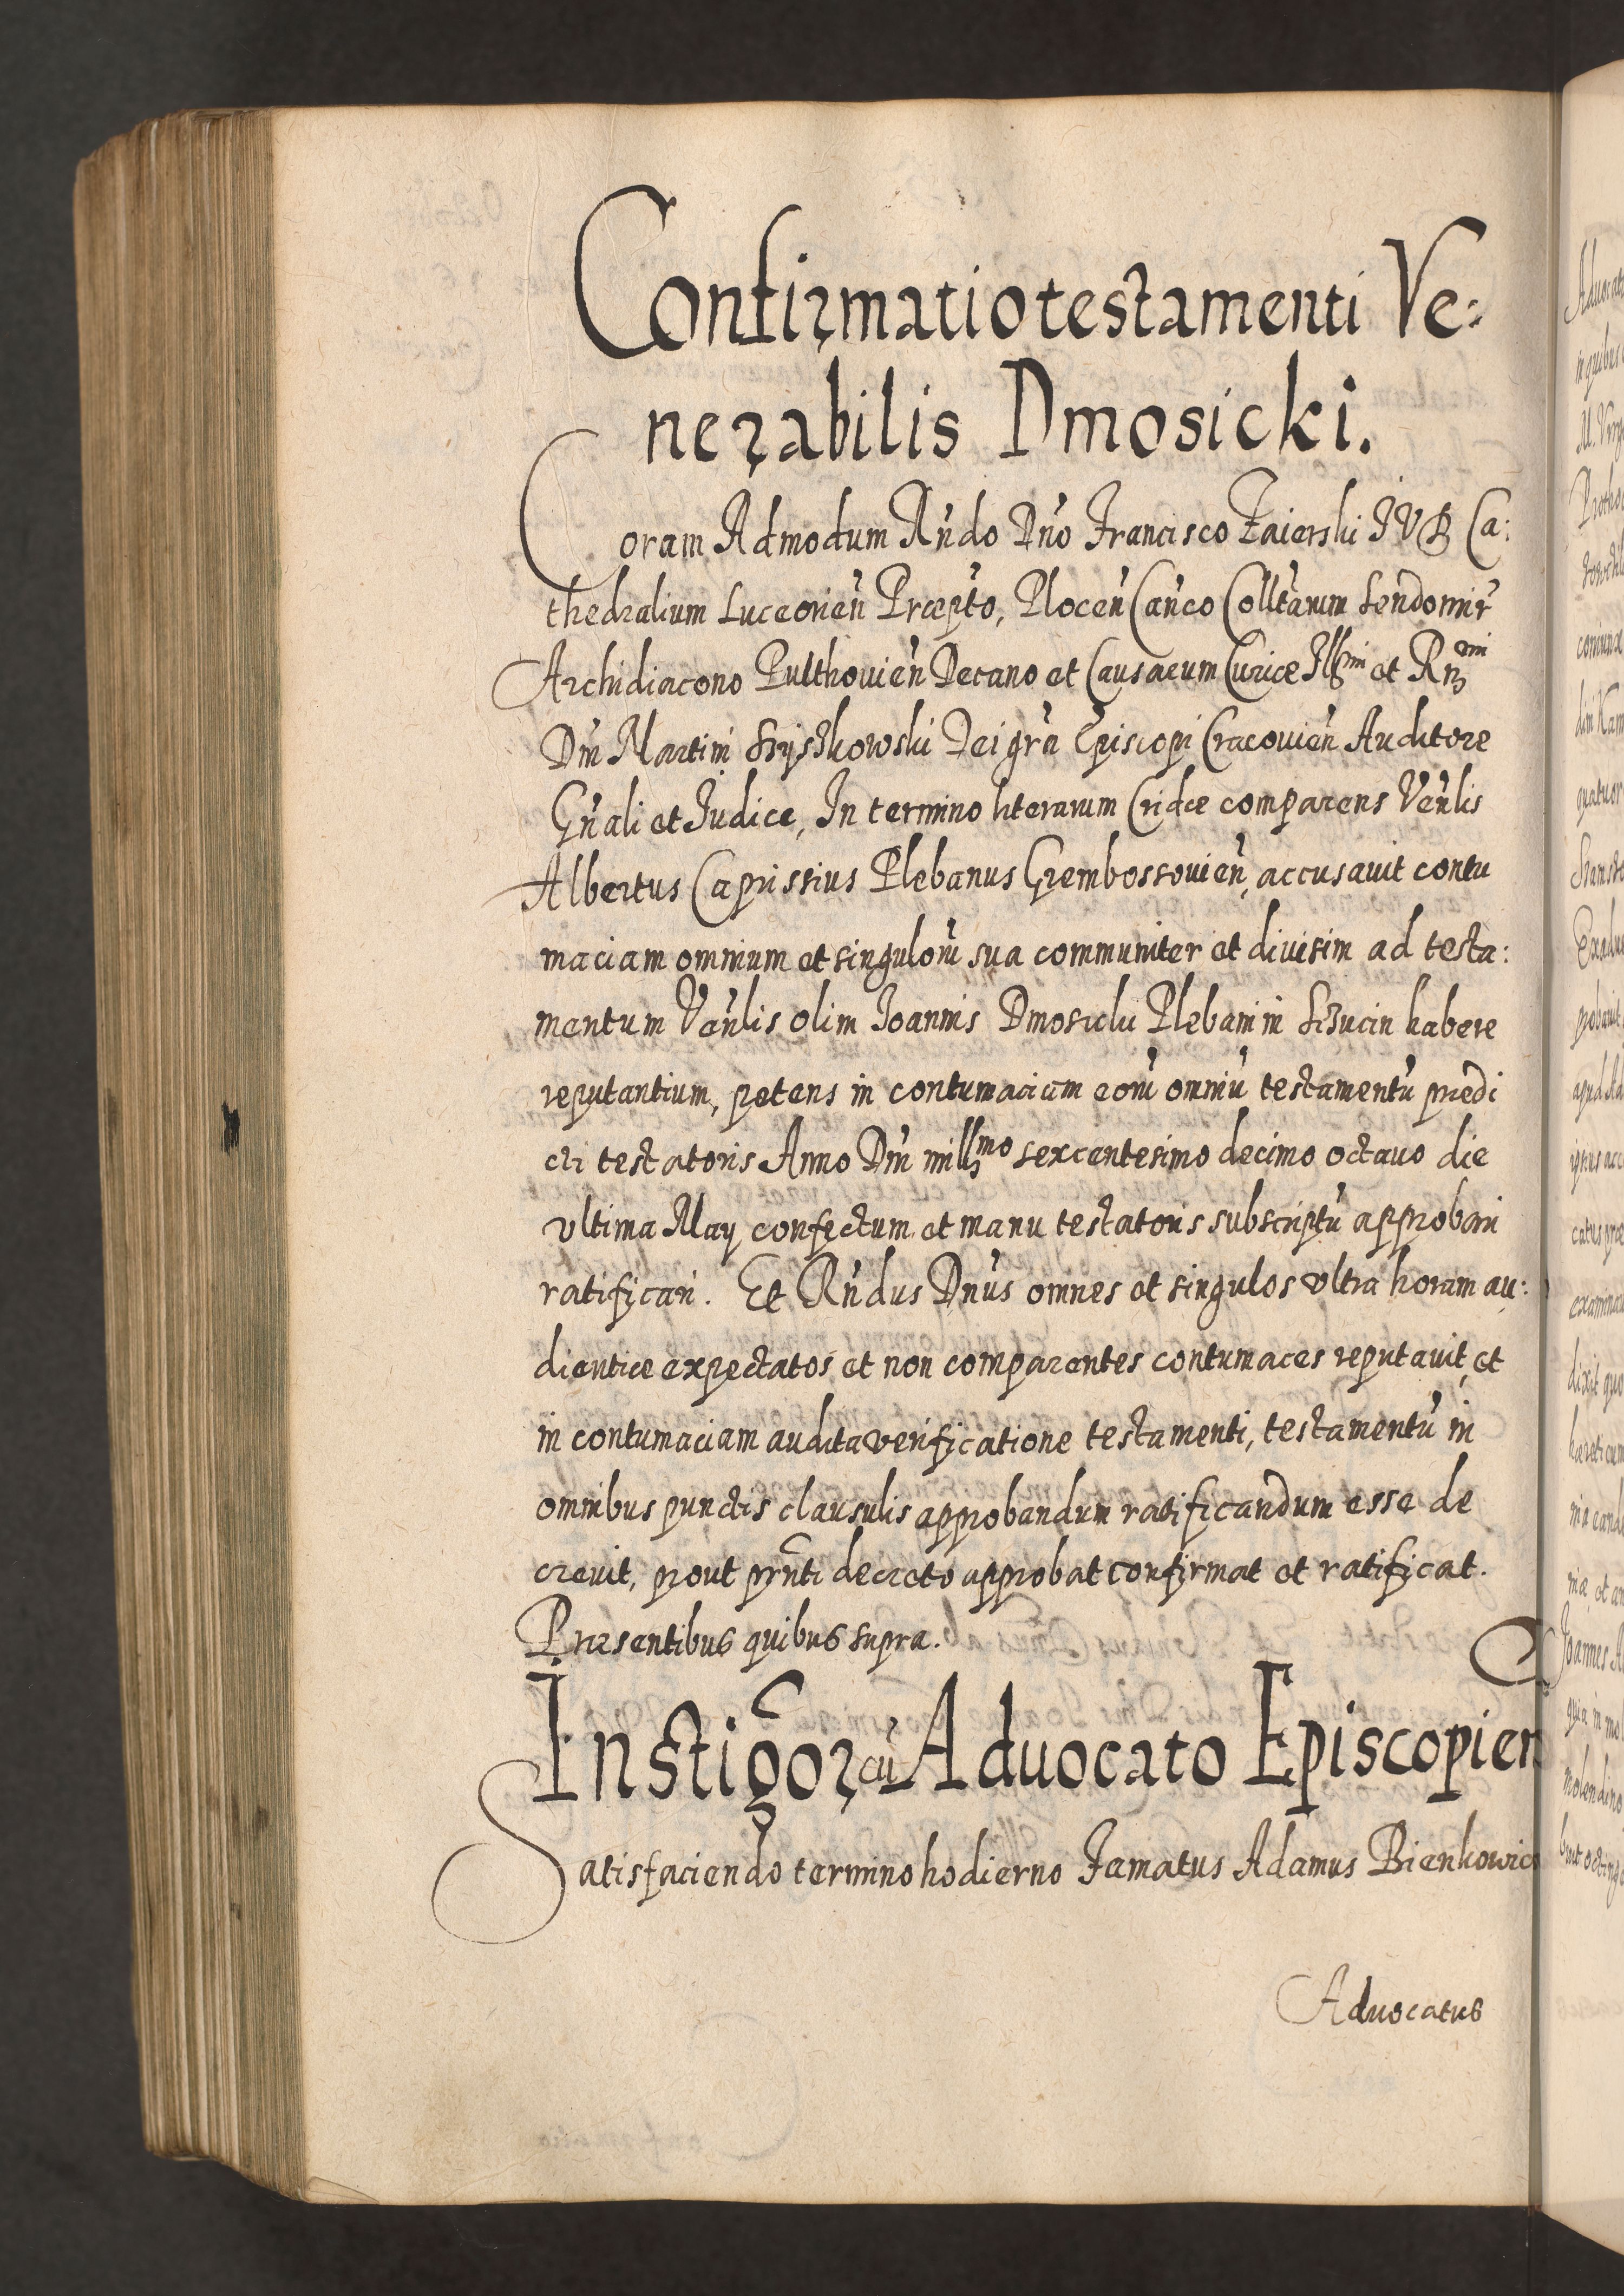 Confirmatio testamenti Ve:
nerabilis Dmosicki.
Coram Admodum Rndo Dno Francisco Zaierski IUD Ca:
thedralium Luceorien Præpto, Plocen Canco Colltarum Sendomir
Archidiacono Pulthovien Decano et Causarum Curiæ Illmi et Rmi
Dni Martini Szyszkowski Dei gra Episcopi Cracovien Auditore
Gnali et Judice, In termino literarum Cridæ comparens Venlis
Albertus Caprissius Plebanus Grembossovien, accusavit contu
maciam omnium et singuloru sua communiter et divisim ad testa:
mentum Venlis olim Joannis Dmosicki Plebani in Szucin habere
reputantium, petens in contumaciam eoru omniu testamentu prædi
cti testatoris Anno Dni millmo sexcentesimo decimo octavo die
vltima May confectum et manu testatoris subscriptu approbari
ratificari. Et Rndus Dnus omnes et singulos vltra horam au:
dientiæ expectatos et non comparentes contumaces reputavit, et
in contumaciam audita verificatione testamenti, testamentu in
omnibus punctis clausulis approbandum ratificandum esse de
crevit, prout pnti decreto approbat confirmat et ratificat.
Præsentibus quibus supra.
Instigor cu Aduocato Episcopien
Satisfaciendo termino hodierno Famatus Adamus Bienkowic
Aduocatus